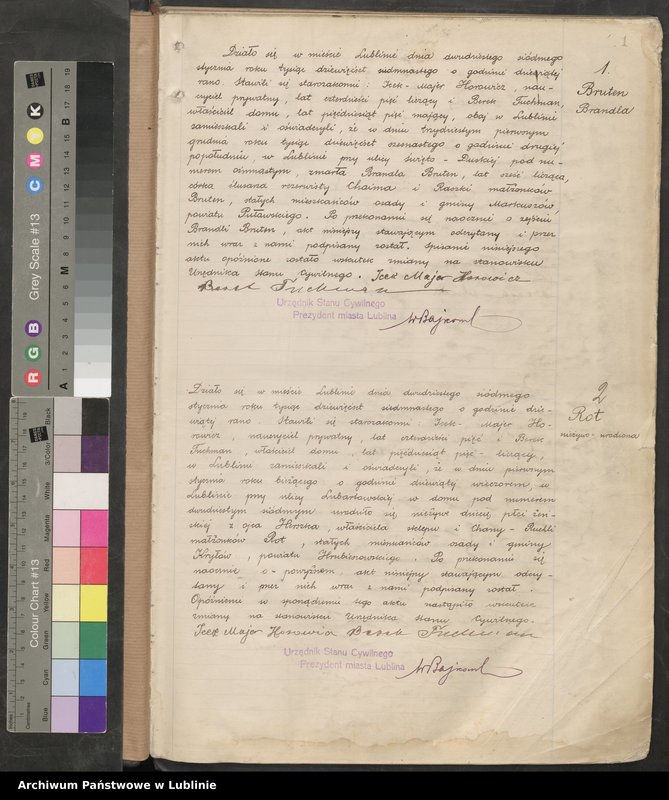 1
1.
Bruten
Brandla
Działo się w mieście Lublinie dnia dwudziestego siódmego
stycznia roku tysiąc dziewięćset siedmnastego o godzinie dziewiątej
rano. Stawili się starozakonni: Icek-Major Horowicz, nau-
czyciel prywatny, lat czterdzieści pięć liczący i Berek Tuchman,
właściciel domu, lat pięćdziesiąt pięć mający, obaj w Lublinie
zamieszkali i oświadczyli, że w dniu trzydziestym pierwszym
grudnia roku tysiąc dziewięćset szesnastego o godzinie drugiej
popołudniu, w Lublinie przy ulicy Święto-Duskiej pod nu-
merem ośmnastym, zmarła Brandla Bruten, lat sześć licząca,
córka ślusarza rezerwisty Chaima i Raszki małżonków
Bruten, stałych mieszkańców osady i gminy Markuszów,
powiatu Puławskiego. Po przekonaniu się naocznie o zejściu
Brandli Bruten, akt niniejszy stawającym odczytany i przez
nich wraz z nami podpisany został. Spisanie niniejszego
aktu opóźnione zostało wskutek zmiany na stanowisku
Urzędnika stanu cywilnego. Icek Major Horowicz
Berek Tuchman
Urzędnik Stanu Cywilnego
Prezydent miasta Lublina
2
Rot
nieżywo-urodzona
Działo się w mieście Lublinie dnia dwudziestego siódmego
stycznia roku tysiąc dziewięćset siedmnastego o godzinie dzie-
wiątej rano. Stawili się starozakonni: Icek-Major Ho-
rowicz, nauczyciel prywatny, lat czterdzieści pięć i Berek
Tuchman, właściciel domu, lat pięćdziesiąt pięć liczący,
w Lublinie zamieszkali i oświadczyli, że w dniu pierwszym
stycznia roku bieżącego o godzinie dziewiątej wieczorem, w
Lublinie przy ulicy Lubartowskiej w domu pod numerem
dwudziestym siódmym urodziło się nieżywe dziecię, płci żeń-
skiej z ojca Herszka, właściciela sklepu i Chany-Ruchli
małżonków Rot, stałych mieszkańców osady i gminy
Kryłów, powiatu Hrubieszowskiego. Po przekonaniu się
naocznie o powyższem, akt niniejszy stawającym odczy-
tany i przez nich wraz z nami podpisany został.
Opóźnienie w sporządzeniu tego aktu nastąpiło wskutek
zmiany na stanowisku Urzędnika stanu cywilnego.
Icek Major Horowicz Berek Tuchman
Urzędnik Stanu Cywilnego
Prezydent miasta Lublina
Grey Scale #13
R G B C M Y K
A 1 2 3 4 5 6 M 8 9 10 11 12 13 14 15 B 17 18 19
Colour Chart #13
Blue Cyan Green Yellow Red Magenta White 3/Color Black
Inches
Centimetres
Archiwum Państwowe w Lublinie